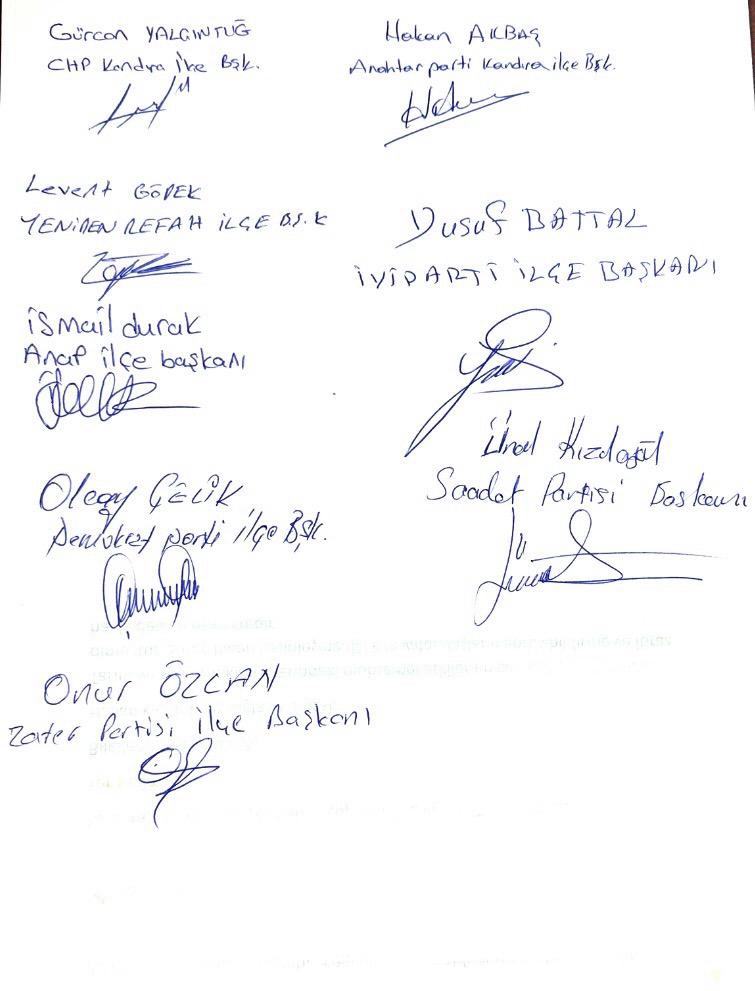 Gürcan YALÇINTUĞ
CHP Kandıra İlçe Bşk.
Hakan AKBAŞ
Anahtar parti Kandıra ilçe Bşk.
Levent GÖDEK
YENİDEN REFAH İLÇE BŞ.K
Yusuf BATTAL
İYİ PARTİ İLÇE BAŞKANI
ismail durak
Anap ilçe başkanı
Ünal
Saadet Partisi Başkanı
Olcay ÇELİK
Demokrat parti ilçe Bşk.
Onur ÖZCAN
Zafer Partisi ilçe Başkanı